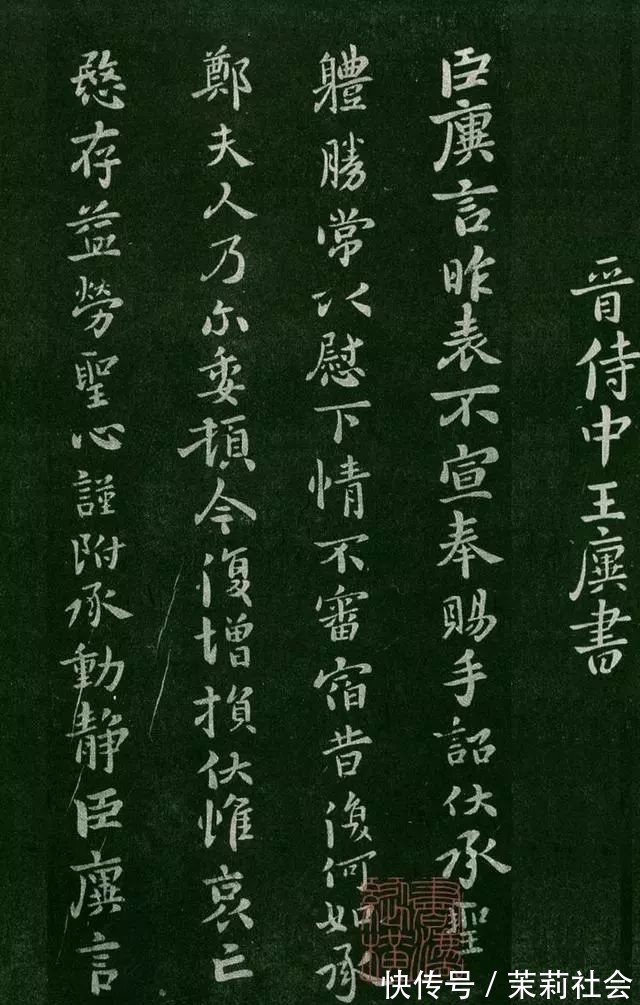 晋侍中王廙書
臣廙言昨表不宣奉賜手詔伏承聖
體勝常以慰下情不審宿昔復何如承
鄭夫人乃尔委頓今復增損伏惟哀亡
愍存益勞聖心謹附承動静臣廙言
快传号／茉莉社会